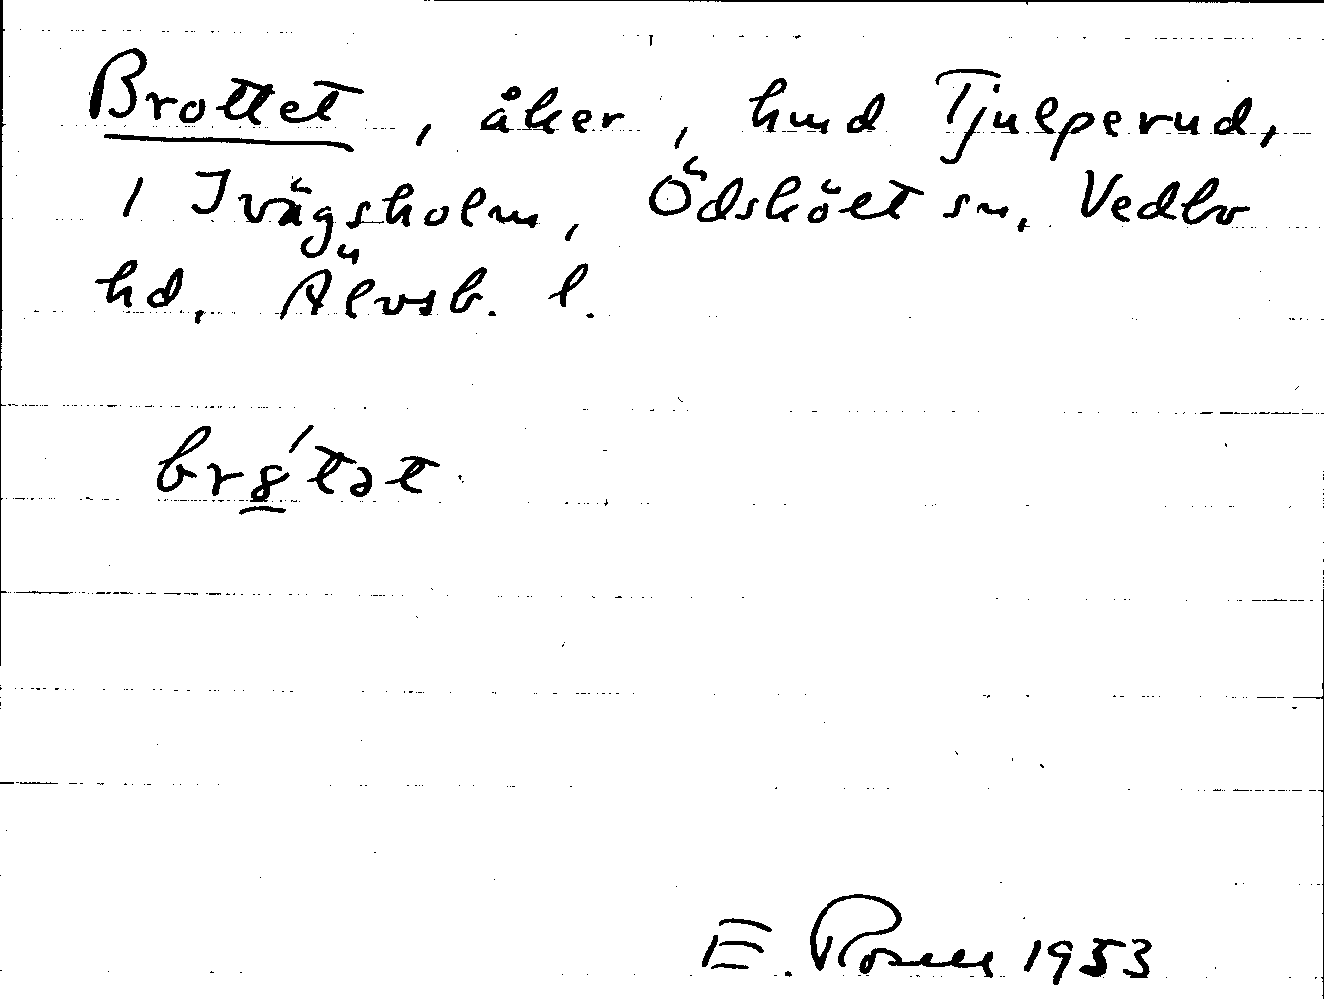 Brottet, åker, hmd Tjulperud,
1 Ivägsholm, Ödsköet sn, Vedbo
hd. Älvsb. l.
br8́tət
E. Rosell 1953